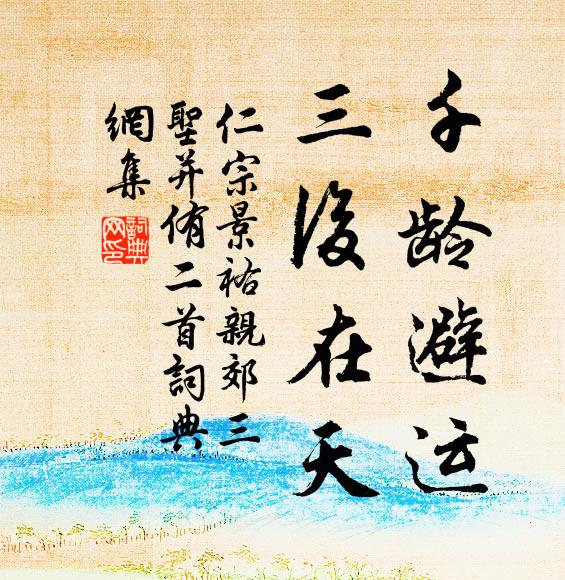 千龄避运
三後在天
仁宗景祐親郊三
聖并侑二首詞典
網集
詞典网印